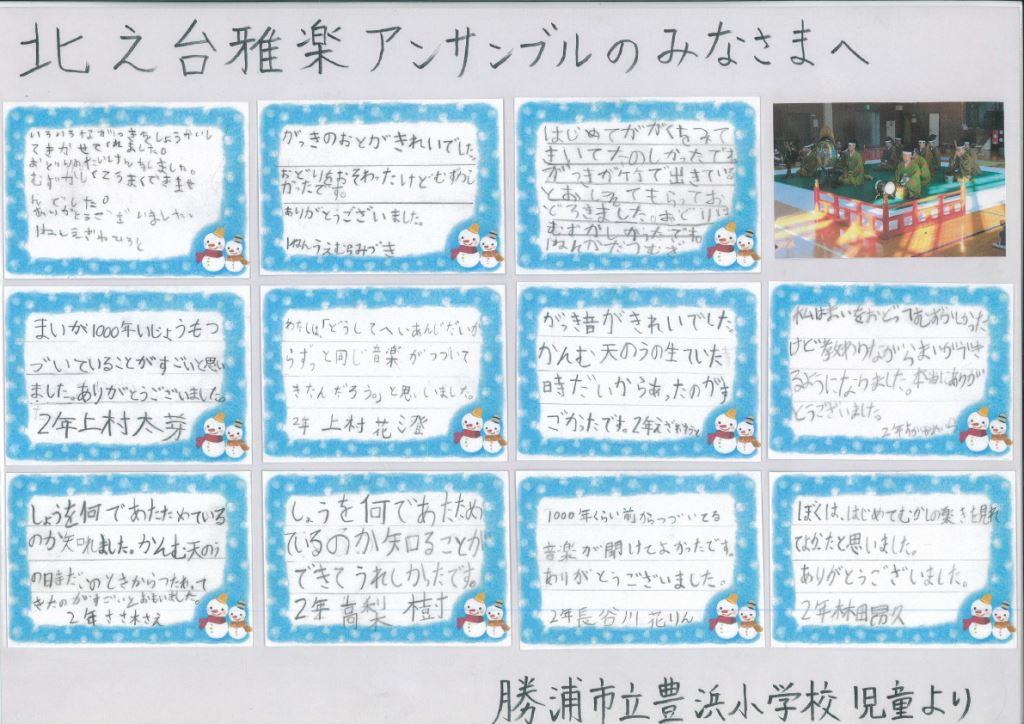 北之台雅楽アンサンブルのみなさまへ
いろいろながっきをしょうかいし
てきかせてくれました。
おどりのたいけんもしました。
むずかしくてうまくできませ
んでした。
ありがとうございました
1ねん
がっきのおとがきれいでした。
おどりをおそわったけどむずかし
かったです。
ありがとうございました。
1ねんうえむらみづき
はじめてががくをみて
きいてたのしかったです
がっきが竹で出きている
とおしえてもらってお
どろきました。おどりは
むずかしかったです
1ねん
まいが1000年いじょうもつ
づいていることがすごいと思い
ました。ありがとうございました。
2年上村太芽
わたしは「どうしてへいあんじだいか
らずっと同じ音楽がつづいて
きたんだろう。」と思いしました。
2年 上村花澄
がっき音がきれいでした。
かんむ天のうの生でいた
時だいからあったのがす
ごかったです。2年
私はまいをおどってむずかしかった
けど教わりながらまいができ
るようになりました。本当にありが
とうございました。
2年
しょうを何であたためている
のか知れました。かんむ天のう
の時だいのときからつたわって
きたのがすごいとおもいました。
2年ささ木さえ
しょうを何であたため
ているのか知ることが
できてうれしかったです。
2年高梨 樹
1000年くらい前からつづいてる
音楽が聞けてよかったです。
ありがとうございました。
2年長谷川花りん
ぼくは、はじめてむかしの楽きを見れ
てよかたと思いました。
ありがとうございました。
2年林田昂久
勝浦市立豊浜小学校 児童より